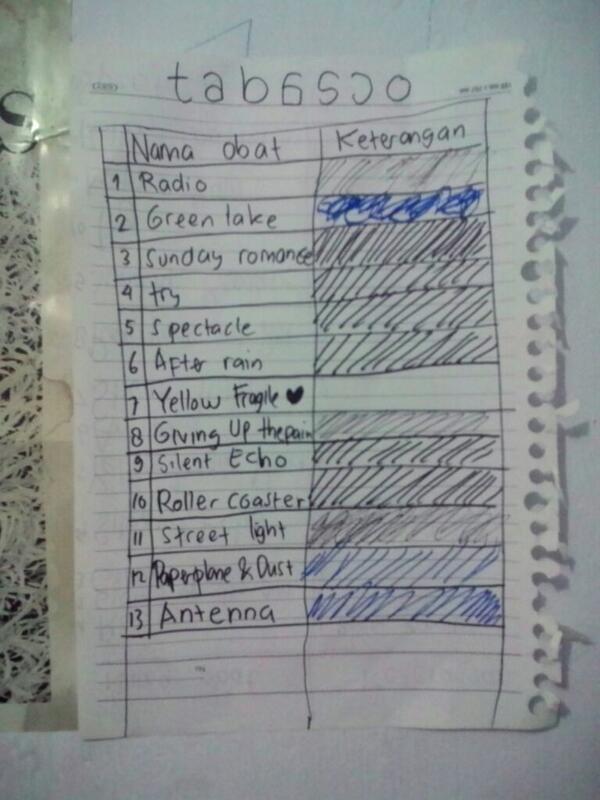 tabasco
Nama obat Keterangan
1 Radio
2 Green lake
3 Sunday romance
4 try
5 Spectacle
6 After rain
7 Yellow Fragile ♥
8 Giving Up the pain
9 Silent Echo
10 Roller coaster
11 Street light
12 Paperplane & Dust
13 Antenna